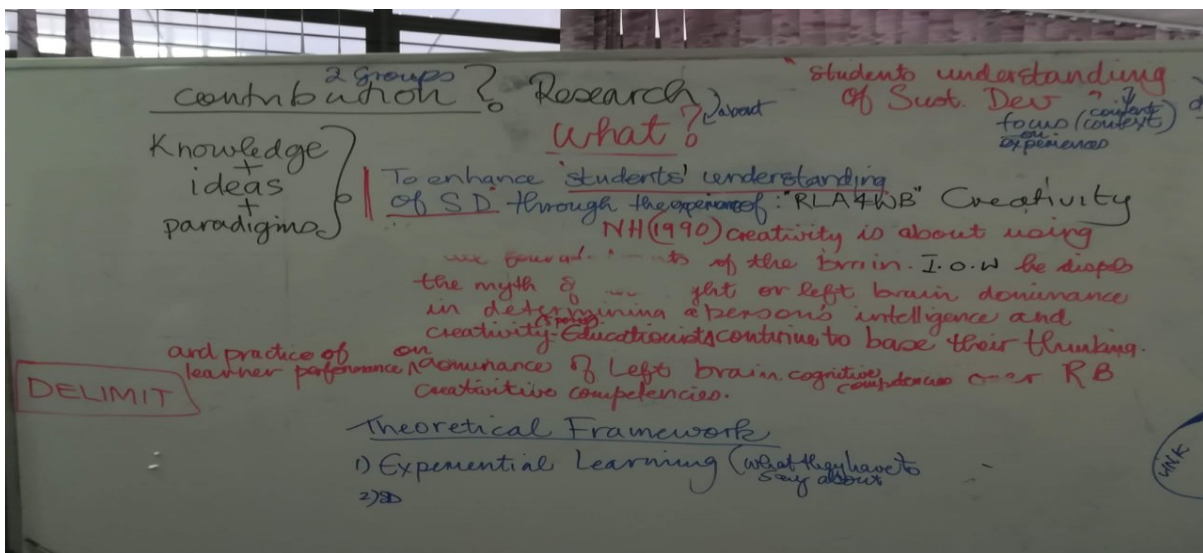 2 groups
contribution? Research
what? about
"students understanding
of Sust. Dev ?
focus (context)
on
experiences
Knowledge
+
ideas
+
paradigms
To enhance students' understanding
of SD through the experience of: "RLA4WB" Creativity
NH (1990) creativity is about using
of the brain. I.O.W he
the myth of or left brain dominance
in determining a person's intelligence and
creativity - Educationists continue to base their thinking.
and practice of on
learner performance dominance of Left brain cognitive competencies over RB
creativitive competencies.
DELIMIT
Theoretical Framework
1) Experiential Learning (what they have to
say about
2) SD
UNK